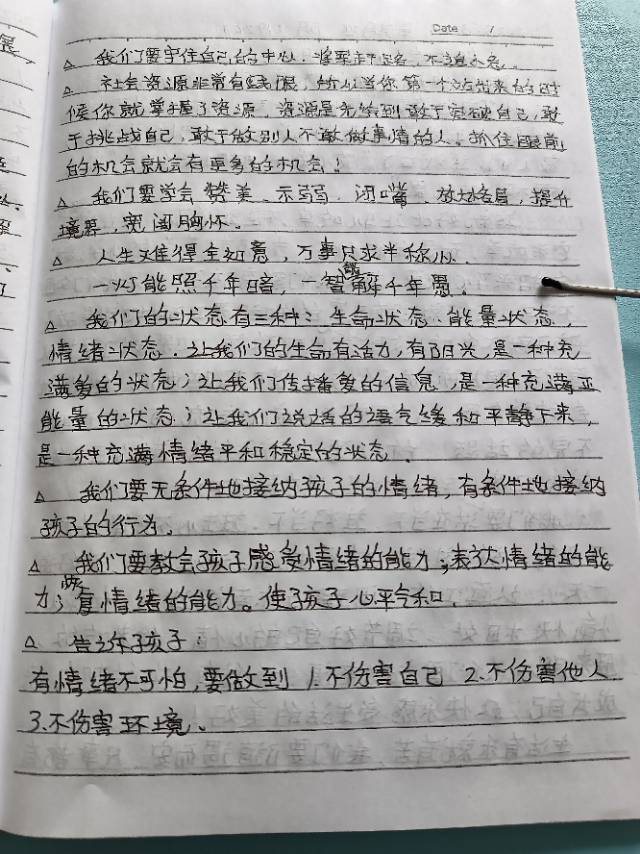 Date /
△ 我们要守住自己的中心,将军赶路,不追小兔。
△ 社会资源非常有限,所以当你第一个站出来的时
候你就掌握了资源,资源是先给到敢于突破自己,敢
于挑战自己,敢于做别人不敢做事情的人。抓住眼前
的机会就会有更多的机会!
△ 我们要学会赞美、示弱、闭嘴、放大格局,提升
境界,宽阔胸怀。
△ 人生难得全如意,万事只求半称心.
一灯能照千年暗,一智能解千年愚。
△ 我们的状态有三种:生命状态.能量状态,
情绪状态.让我们的生命有活力,有阳光,是一种充
满爱的状态;让我们传播爱的信息,是一种充满正
能量的状态;让我们说话的语气缓和平静下来,
是一种充满情绪平和稳定的状态.
△ 我们要无条件地接纳孩子的情绪,有条件地接纳
孩子的行为。
△ 我们要教会孩子感受情绪的能力;表达情绪的能
力;恢复情绪的能力。使孩子心平气和.
△ 告诉孩子:
有情绪不可怕,要做到 1.不伤害自己 2.不伤害他人
3.不伤害环境。